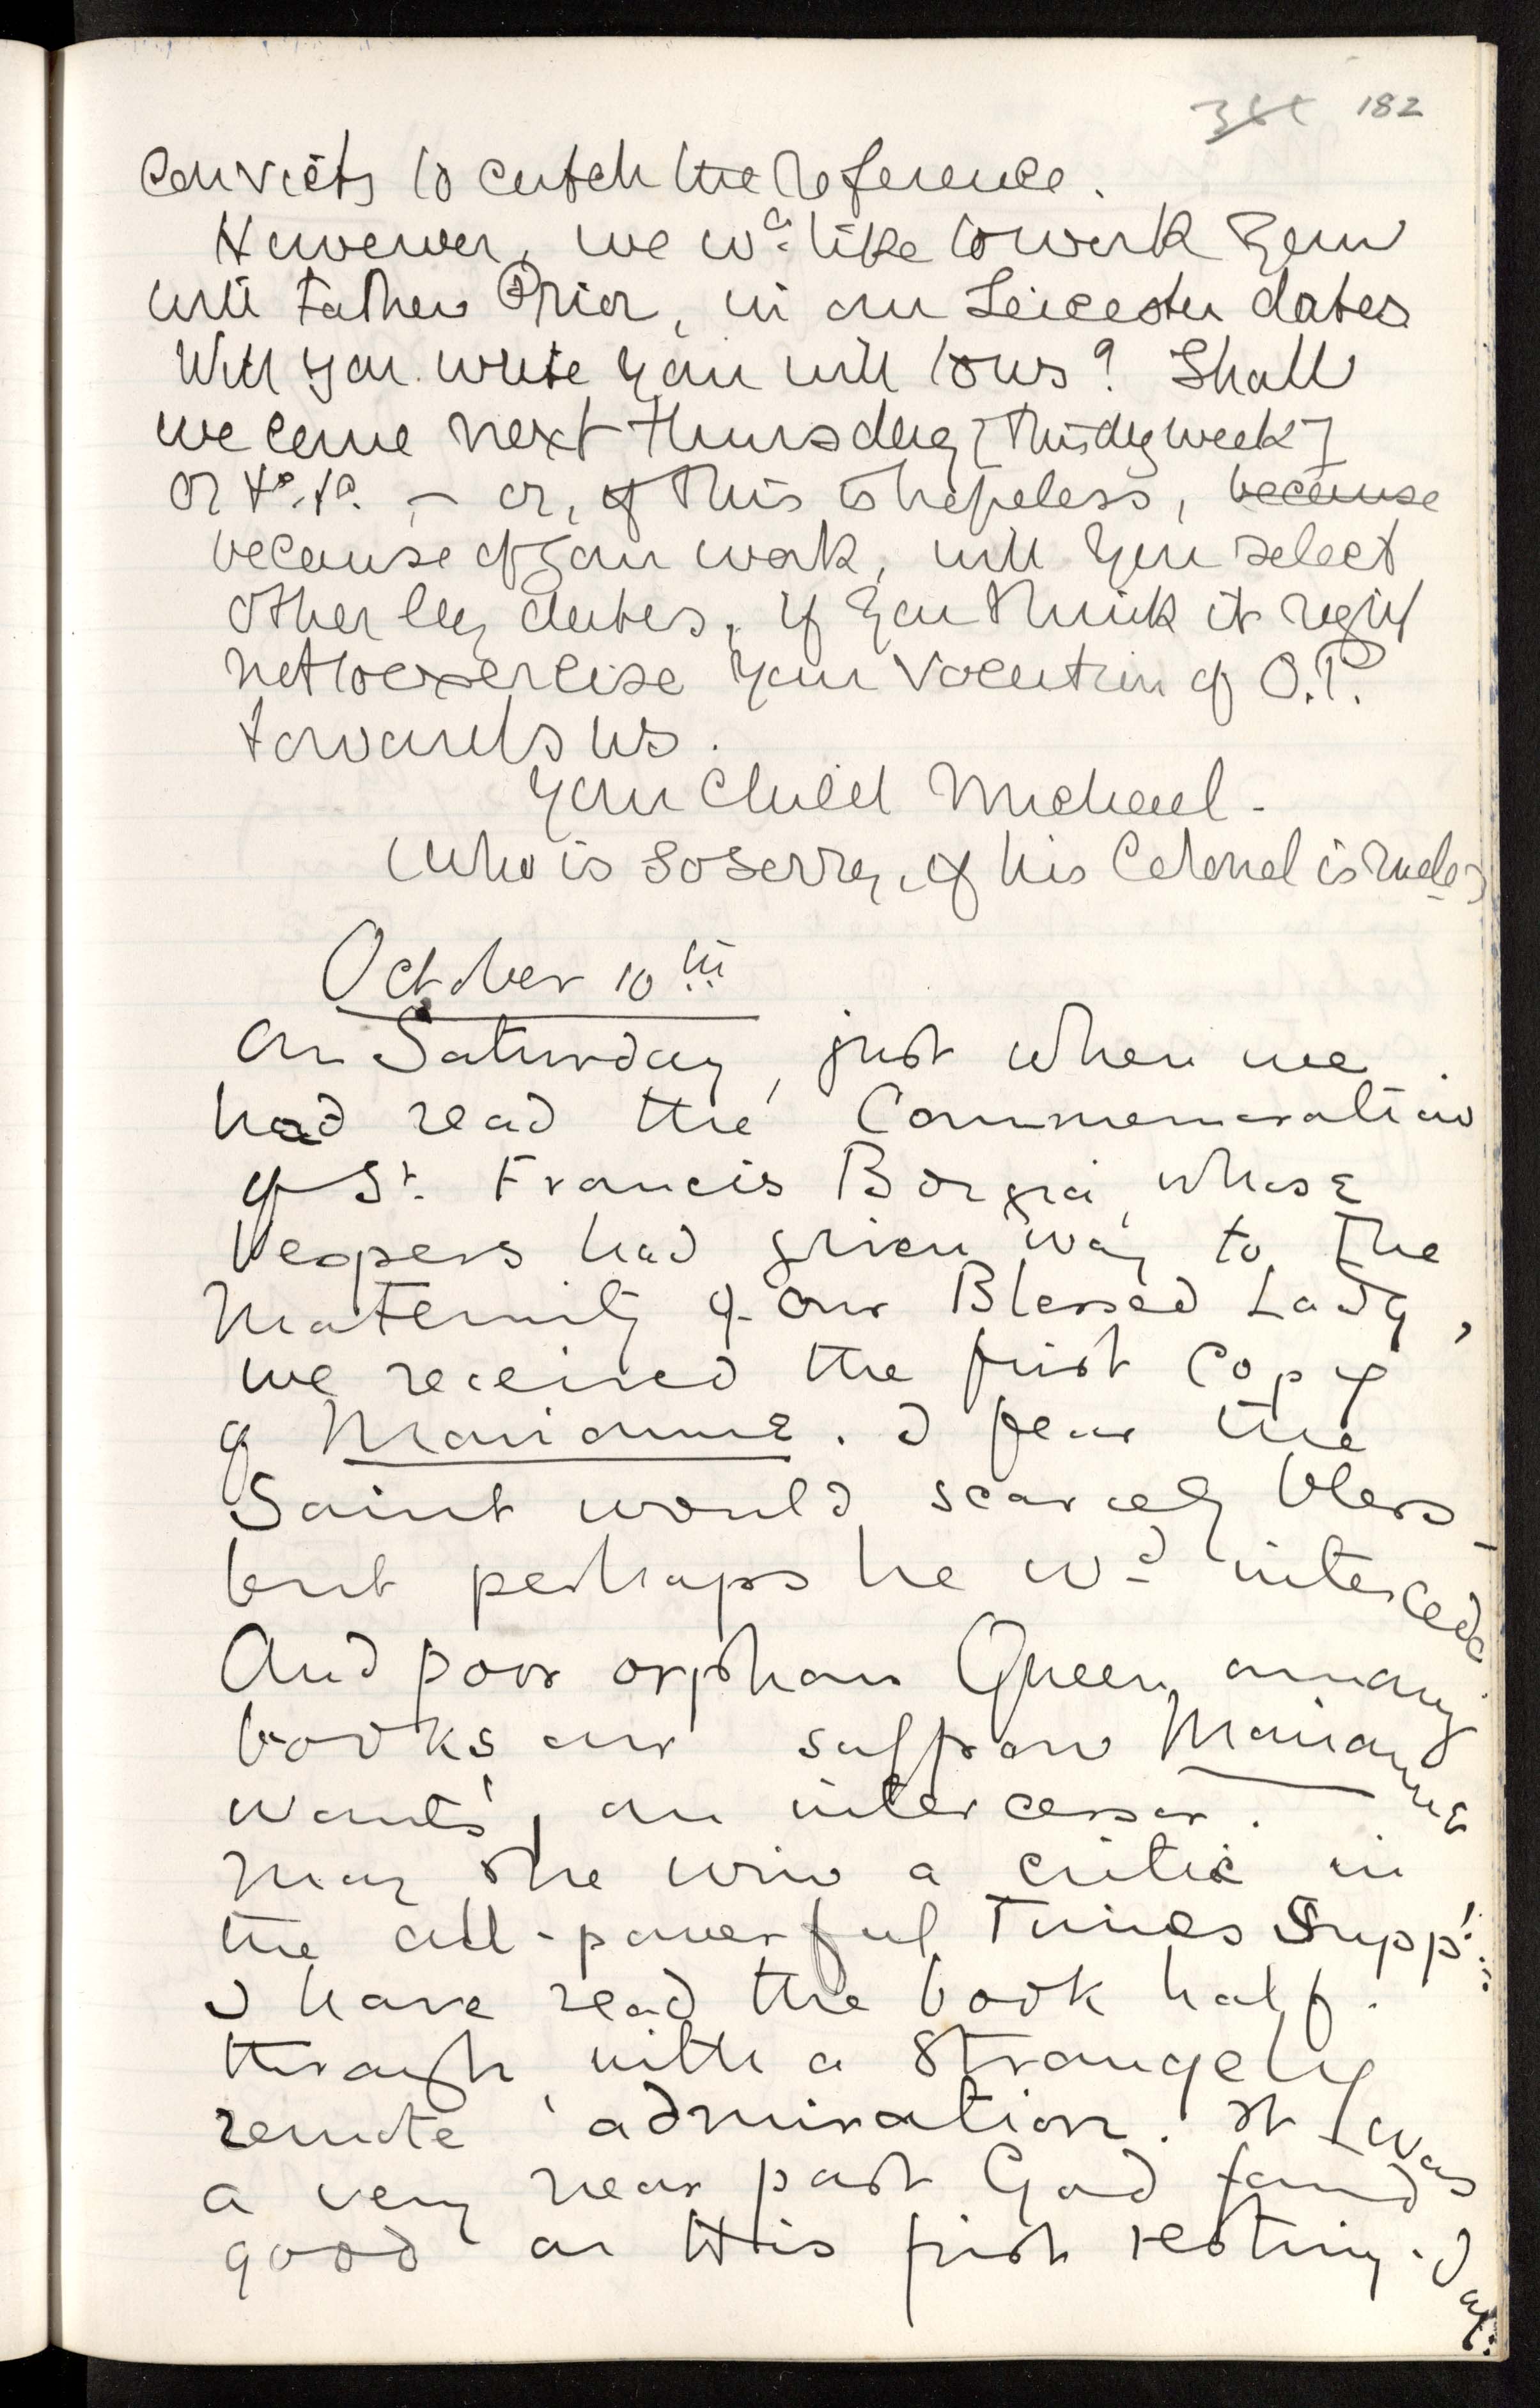 182
convicts to catch the reference.
However, we w^d like to work your
will Father Prior, in our Leicester dates
Will you write your will to us? Shall
we come next Thursday [this day week]
or — or, if this is hopeless, because
because of your work, will you select
other dates, if you think it right
not to exercise your vocation of O.P.
towards us.
Your child Michael -
(who is so sorry, if his Colonel is rude)
October 10th
On Saturday, just when we
had read the Commemoration
of St. Francis Borgia, whose
Vespers had given way to the
Maternity of Our Blessed Lady,
we received the first copy
of Marianne. I fear the
Saint would scarcely bless -
but perhaps he w^d intercede
And poor orphan Queen, among
books our saffron Marianne
wants, an intercessor.
May she win a critic in
the all-powerful Times Supp^t:
I have read the book half-
through, with a strangely
remote admiration. It was
a very near past God found
good on His first resting-day.